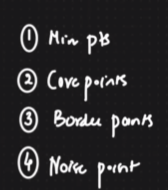 ① Min pts
② Core points
③ Border points
④ Noise point